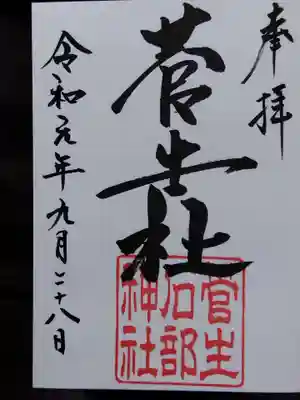 奉拝
菅生社
菅生
石部
神社
令和元年九月二十八日